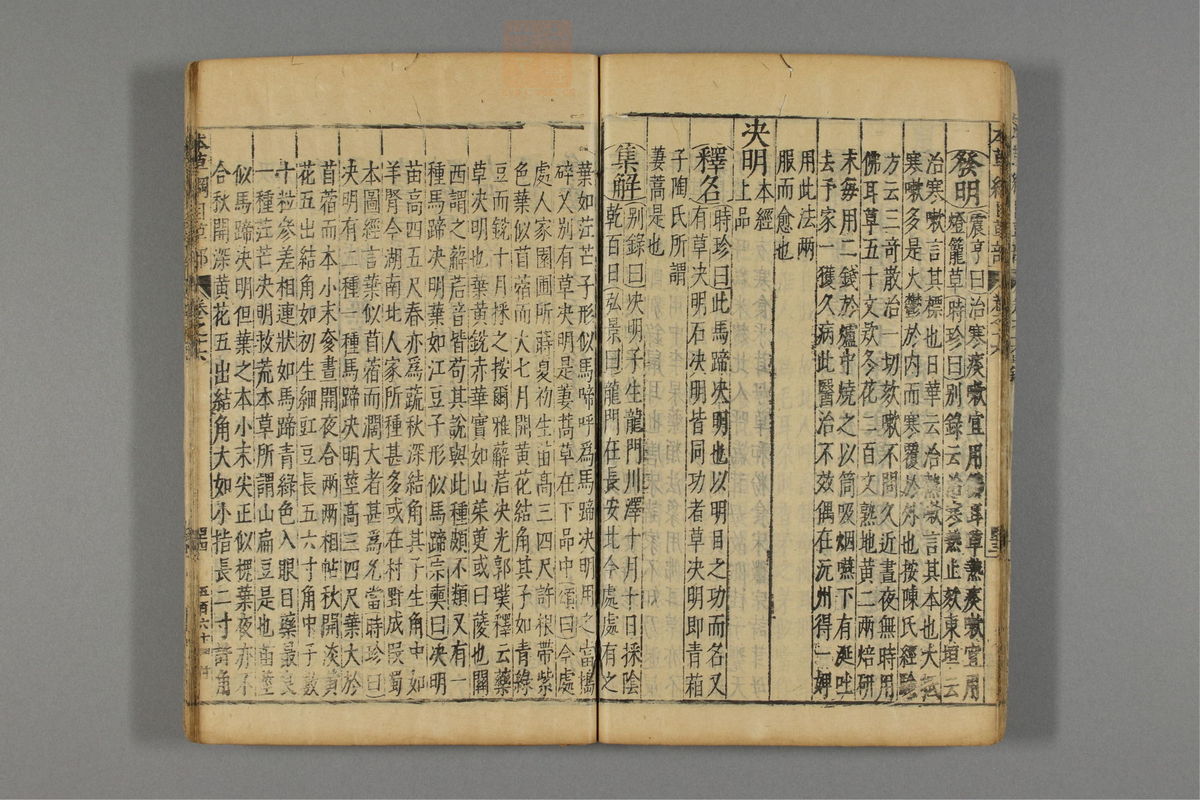 發明震亨曰治寒痰嗽宜用佛耳草熱痰嗽宜用
燈籠草時珍曰別錄云治寒熱止欬東垣云
治寒嗽言其標也日華云治熱嗽言其本也大抵
寒嗽多是火鬱於內而寒覆於外也按陳氏經驗
方云三奇散治一切欬嗽不問久近晝夜無時用
佛耳草五十文欵冬花二百文熟地黃二兩焙研
末每用二錢於爐中燒之以筒吸烟嚥下有涎吐
去予家一獲久病此醫治不效偶在沅州得一婢
用此法兩
服而愈也
決明本經
上品
釋名時珍曰此馬蹄決明也以明目之功而名又
有草決明石決明皆同功者草決明即青葙
子陶氏所謂
萋蒿是也
集解別錄曰決明子生龍門川澤十月十日採陰
乾百日弘景曰龍門在長安北今處處有之
葉如茳芒子形似馬蹄呼爲馬蹄決明用之當擣
碎又別有草決明是萋蒿草在下品中頌曰今處
處人家園圃所蒔夏初生苗高三四尺許根帶紫
色葉似苜蓿而大七月開黃花結角其子如青綠
豆而銳十月採之按爾雅薢茩决光郭璞釋云藥
草決明也葉黃銳赤華實如山茱萸或曰䕯也關
西謂之薢茩音皆苟其說與此種頗不類又有一
種馬蹄決明葉如江豆子形似馬蹄宗奭曰決明
苗高四五尺春亦爲蔬秋深結角其子生角中如
羊腎今湖南北人家所種甚多或在村野成段蜀
本圖經言葉似苜蓿而濶大者甚爲允當時珍曰
決明有二種一種馬蹄決明莖高三四尺葉大於
苜蓿而本小末奓晝開夜合兩兩相帖秋開淡黃
花五出結角如初生細豇豆長五六寸角中子數
十粒參差相連狀如馬蹄青綠色入眼目藥最良
一種茳芒決明捄荒本草所謂山扁豆是也苗莖
似馬蹄決明但葉之本小末尖正似槐葉夜亦不
合秋開深黃花五出結角大如小指長二寸許角
本草綱目草部 卷之十六